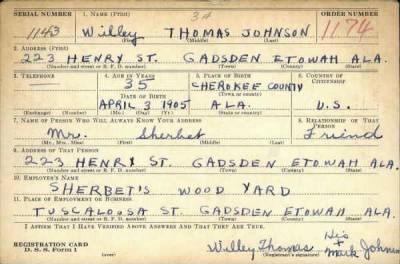 SERIAL NUMBER 1. NAME (Print) ORDER NUMBER
1143 Willey THOMAS JOHNSON 1174
(First) (Middle) (Last)
2. ADDRESS (Print)
223 HENRY ST. GADSDEN ETOWAH ALA.
(Number and street or R. F. D. number) (Town) (County) (State)
3. TELEPHONE 4. AGE IN YEARS 5. PLACE OF BIRTH 6. COUNTRY OF CITIZENSHIP
35 CHEROKEE COUNTY
(Town or county)
DATE OF BIRTH
APRIL 3 1905 ALA. U.S.
(Exchange) (Number) (Mo.) (Day) (Yr.) (State or country)
7. NAME OF PERSON WHO WILL ALWAYS KNOW YOUR ADDRESS 8. RELATIONSHIP OF THAT PERSON
Mr. Sherbet Friend
(Mr., Mrs., Miss) (First) (Middle) (Last)
9. ADDRESS OF THAT PERSON
223 HENRY ST. GADSDEN ETOWAH ALA.
(Number and street or R. F. D. number) (Town) (County) (State)
10. EMPLOYER'S NAME
SHERBET'S WOOD YARD
11. PLACE OF EMPLOYMENT OR BUSINESS
TUSCALOOSA ST. GADSDEN ETOWAH ALA.
(Number and street or R. F. D. number) (Town) (County) (State)
I AFFIRM THAT I HAVE VERIFIED ABOVE ANSWERS AND THAT THEY ARE TRUE.
His
REGISTRATION CARD Willey Thomas + Johnson
D. S. S. Form 1 (over) Mark